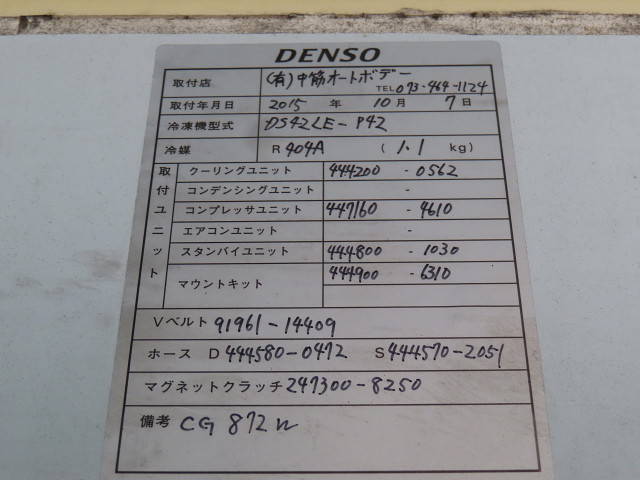 DENSO
取付店 (有)中筋オートボデー TEL 073-464-1124
取付年月日 2015 年 10 月 7 日
冷凍機型式 DS42LE-P42
冷媒 R 404A ( 1.1 kg)
取付ユニット
クーリングユニット 444200 - 0562
コンデンシングユニット -
コンプレッサユニット 447160 - 4610
エアコンユニット -
スタンバイユニット 444800 - 1030
マウントキット 444900 - 6310
Vベルト 91961-14409
ホース D 444580-0472 S 444570-2051
マグネットクラッチ 247300-8250
備考 CG 872